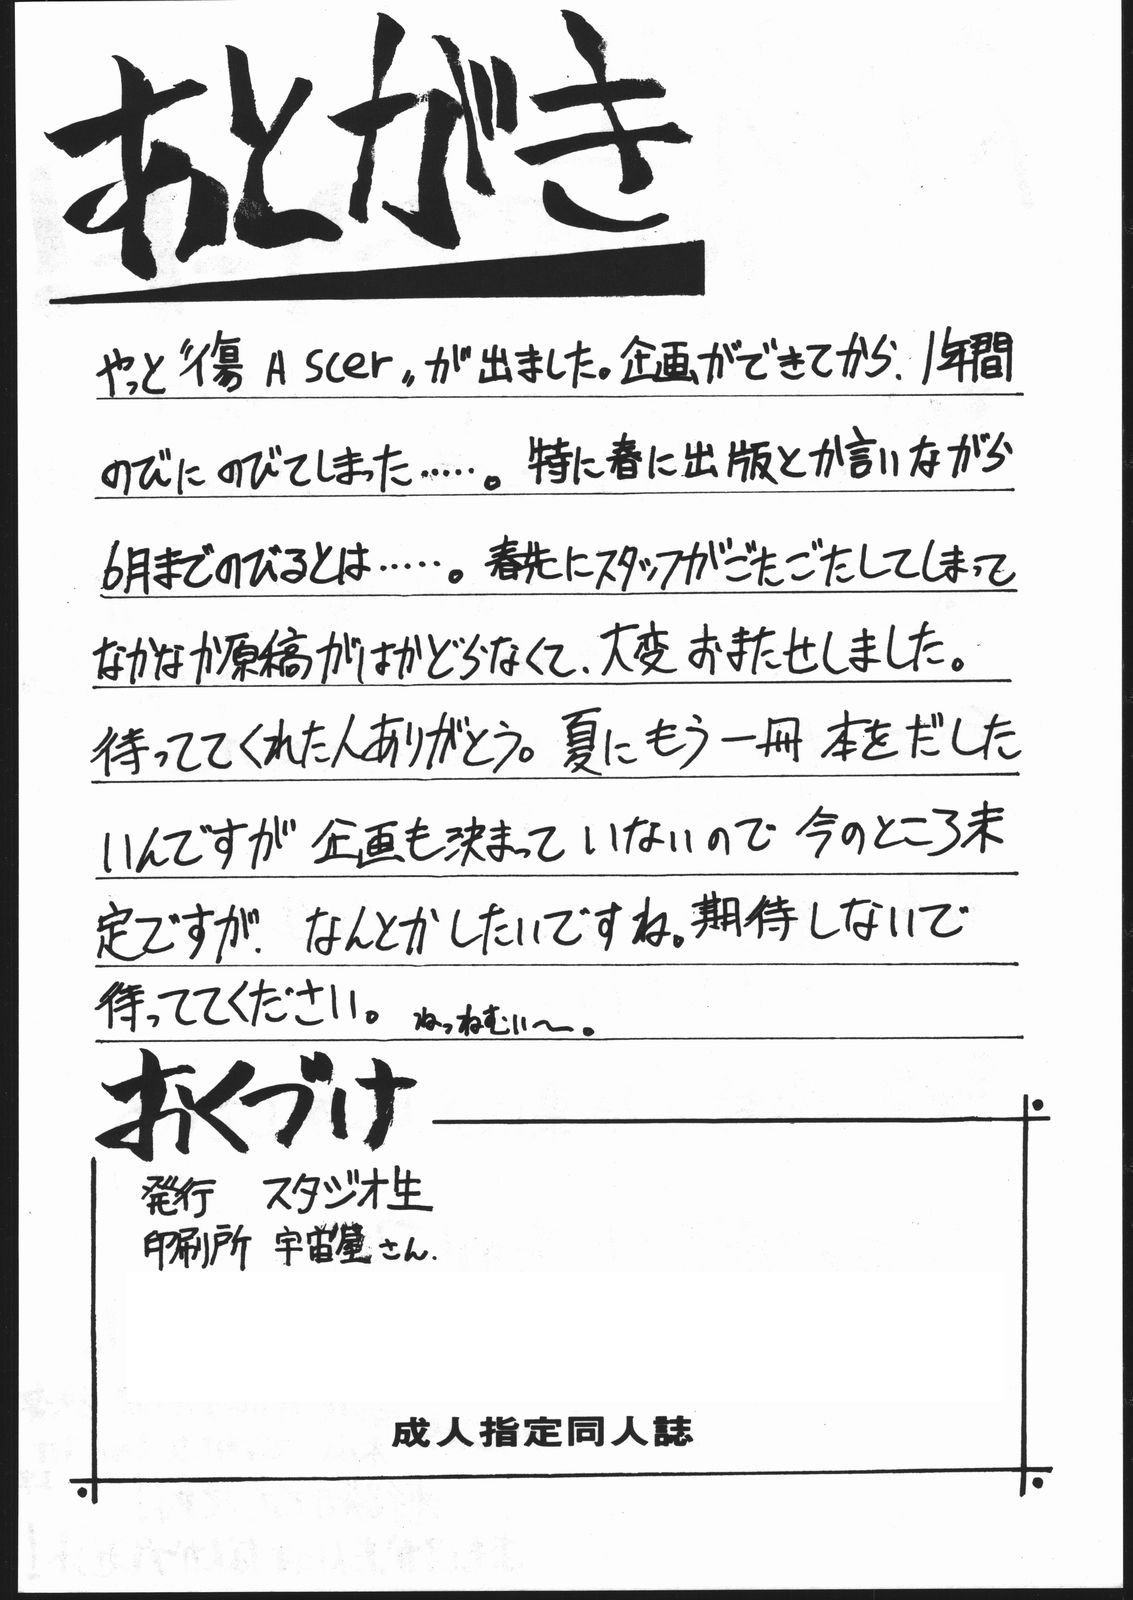 あとがき
やっと“傷 A scer„が出ました。企画ができてから、1年間
のびにのびてしまった……。特に春に出版とか言いながら
6月までのびるとは……。春先にスタッフがごたごたしてしまって
なかなか原稿がはかどらなくて、大変おまたせしました。
待っててくれた人ありがとう。夏にもう一冊 本をだした
いんですが 企画も決まっていないので 今のところ未
定ですが、なんとかしたいですね。期待しないで
待っててください。ねっねむい〜。
おくづけ
発行 スタジオ生
印刷所 宇宙屋さん.
成人指定同人誌